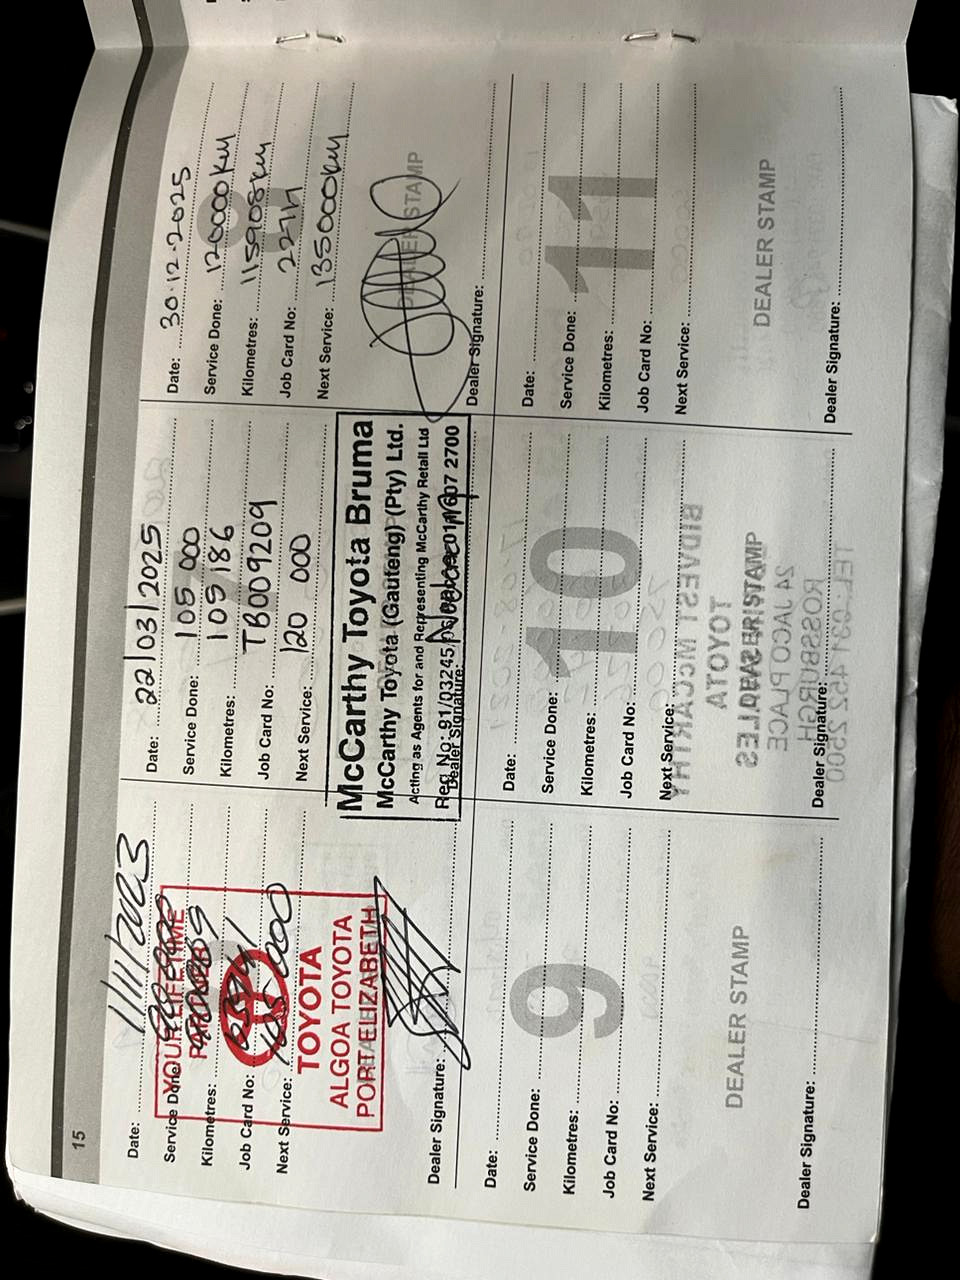 15
Date: 11/11/2023
Service Done:
YOUR LIFETIME
Kilometres:
Job Card No:
Next Service: 105 000
TOYOTA
ALGOA TOYOTA
PORT ELIZABETH
Dealer Signature:
Date: 22/03/2025
Service Done: 105 000
Kilometres: 105 186
Job Card No: TB009209
Next Service: 120 000
McCarthy Toyota Bruma
McCarthy Toyota (Gauteng) (Pty) Ltd.
Acting as Agents for and Representing McCarthy Retail Ltd
Reg No: 91/03245/06
607 2700
Dealer Signature:
Date: 30.12.2025
Service Done: 120000km
Kilometres: 115908km
Job Card No: 22717
Next Service: 135000km
DEALER STAMP
Dealer Signature:
9
Date:
Service Done:
Kilometres:
Job Card No:
Next Service:
DEALER STAMP
Dealer Signature:
10
Date:
Service Done:
Kilometres:
Job Card No:
Next Service:
DEALER STAMP
Dealer Signature:
11
Date:
Service Done:
Kilometres:
Job Card No:
Next Service:
DEALER STAMP
Dealer Signature: